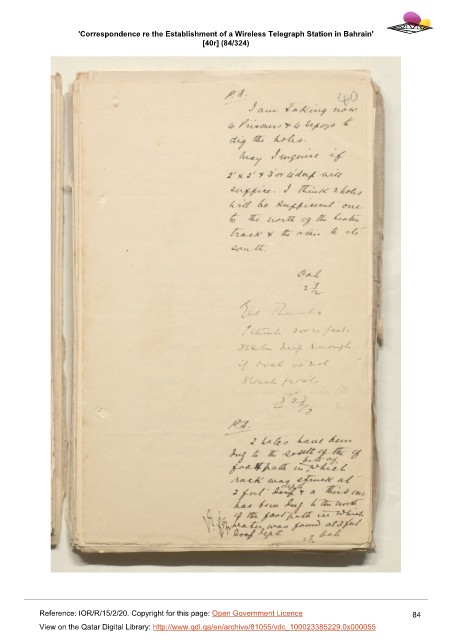 'Correspondence re the Establishment of a Wireless Telegraph Station in Bahrain'
[40r] (84/324)
40
P.A.
I am taking now
4 Prisoners & 4 Sepoys to
dig the holes.
May I enquire if
2' x 2' & 3' or 4' deep will
suffice. I think 2 holes
will be sufficient one
to the north of the beaten
track & the other to its
south.
I think
deep enough
if rock is not
struck first.
P.A.
2 holes have been
dug to the south of the
foot path in both of which
rock was struck at
2 feet & a third one
has been dug to the north
of the foot path in which
water was found at 3 feet
Reference: IOR/R/15/2/20. Copyright for this page: Open Government Licence
84
View on the Qatar Digital Library: http://www.qdl.qa/en/archive/81055/vdc_100023385229.0x000055